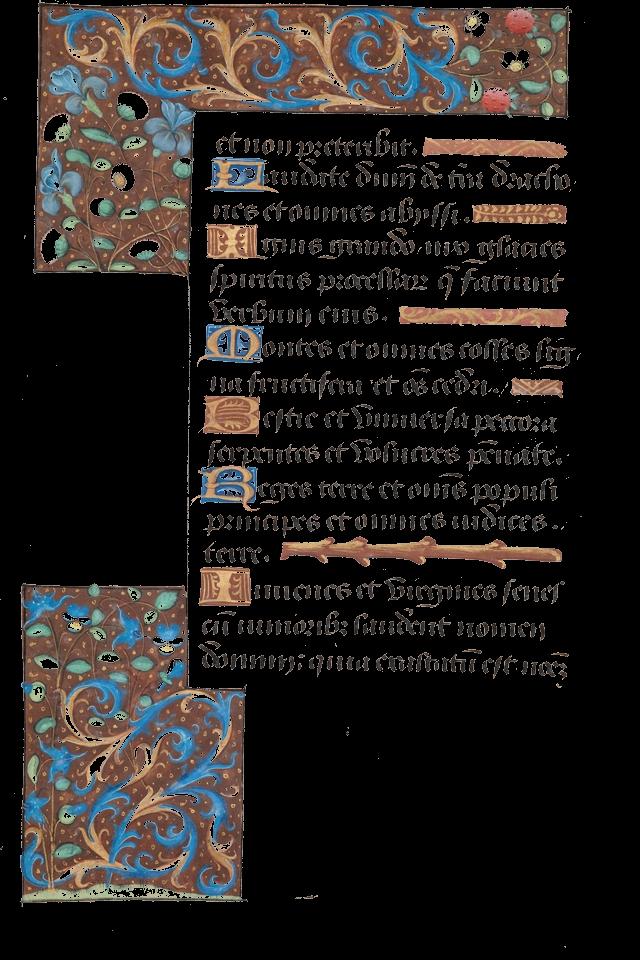 et non preteribit.
Laudate dnm̄ de tr̄a dracho
nes et omnes abyssi.
Ignis grando nix glacies
spiritus procellarū q̄ faciunt
verbum eius.
Montes et omnes colles lig
na fructifera et oēs cedri.
Bestie et universa pecora
serpentes et volucres pēnate.
Reges terre et omēs populi
principes et omnes iudices
terre.
Iuvenes et virgines senes
cū iunioribꝫ laudent nomen
domini: quia exaltatū est nom̄